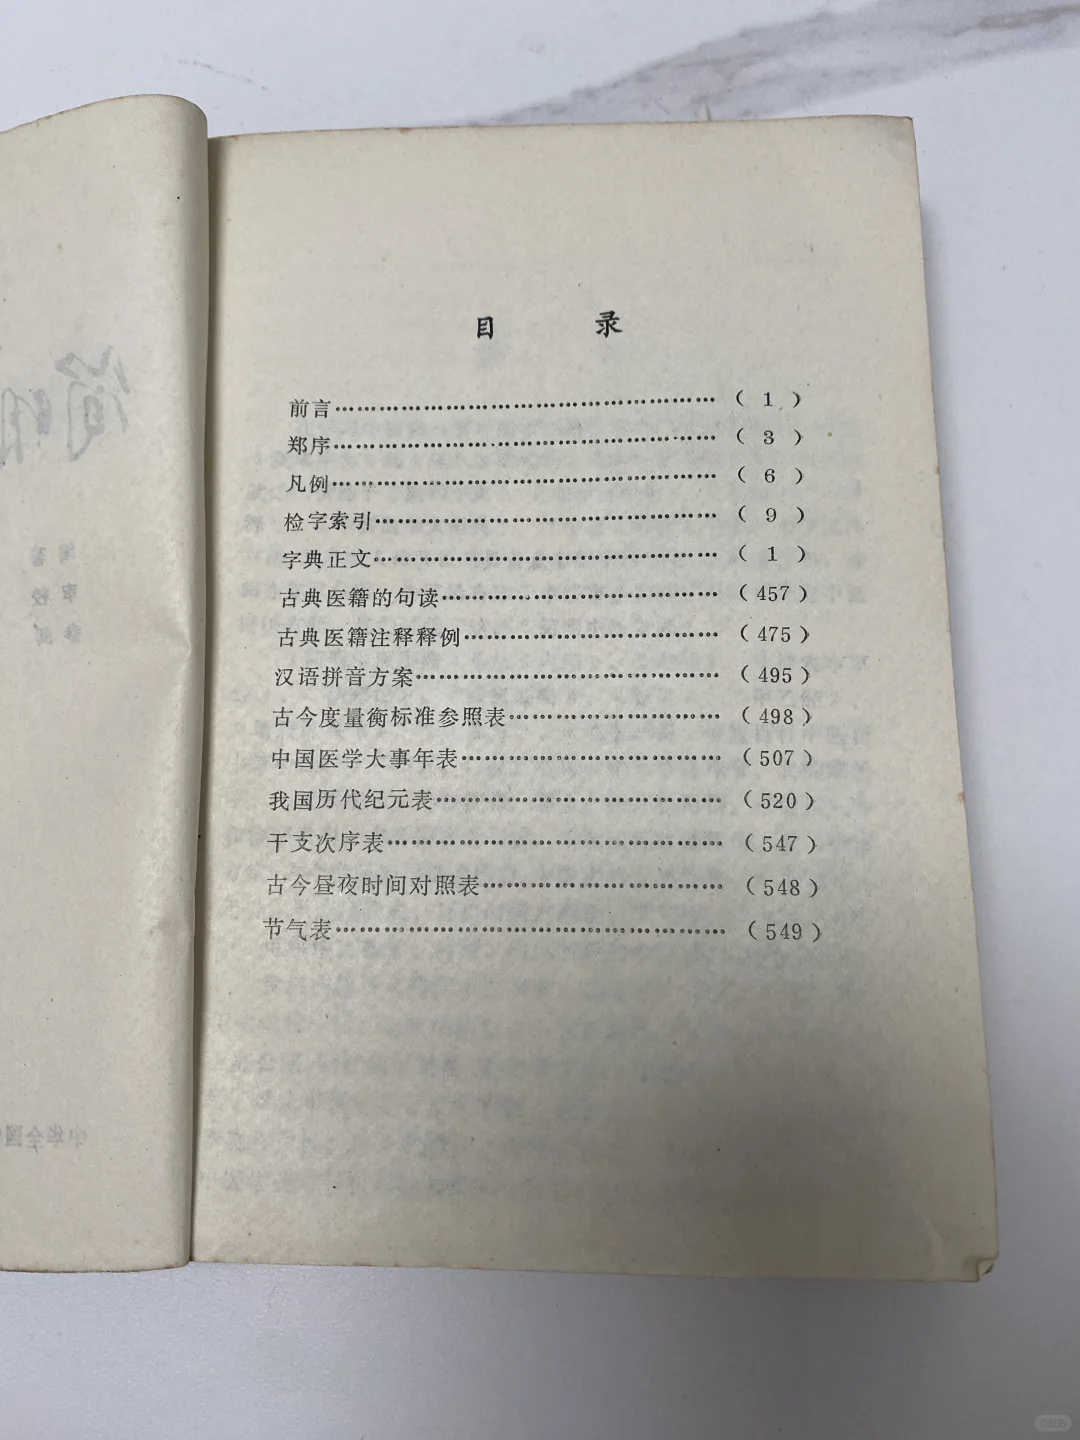 目 录
前言……………………………………( 1 )
郑序……………………………………( 3 )
凡例……………………………………( 6 )
检字索引………………………………( 9 )
字典正文………………………………( 1 )
古典医籍的句读………………………(457)
古典医籍注释释例……………………(475)
汉语拼音方案…………………………(495)
古今度量衡标准参照表………………(498)
中国医学大事年表……………………(507)
我国历代纪元表………………………(520)
干支次序表……………………………(547)
古今昼夜时间对照表…………………(548)
节气表…………………………………(549)